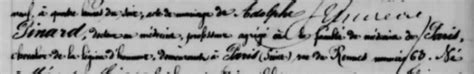 neuf, à quatre heures du soir, acte de mariage de Adolphe
Pinard, docteur en médecine, professeur agrégé à la faculté de médecine de Paris,
chevalier de la légion d'honneur, demeurant à Paris (Seine), rue de Rennes numéro 63. Né